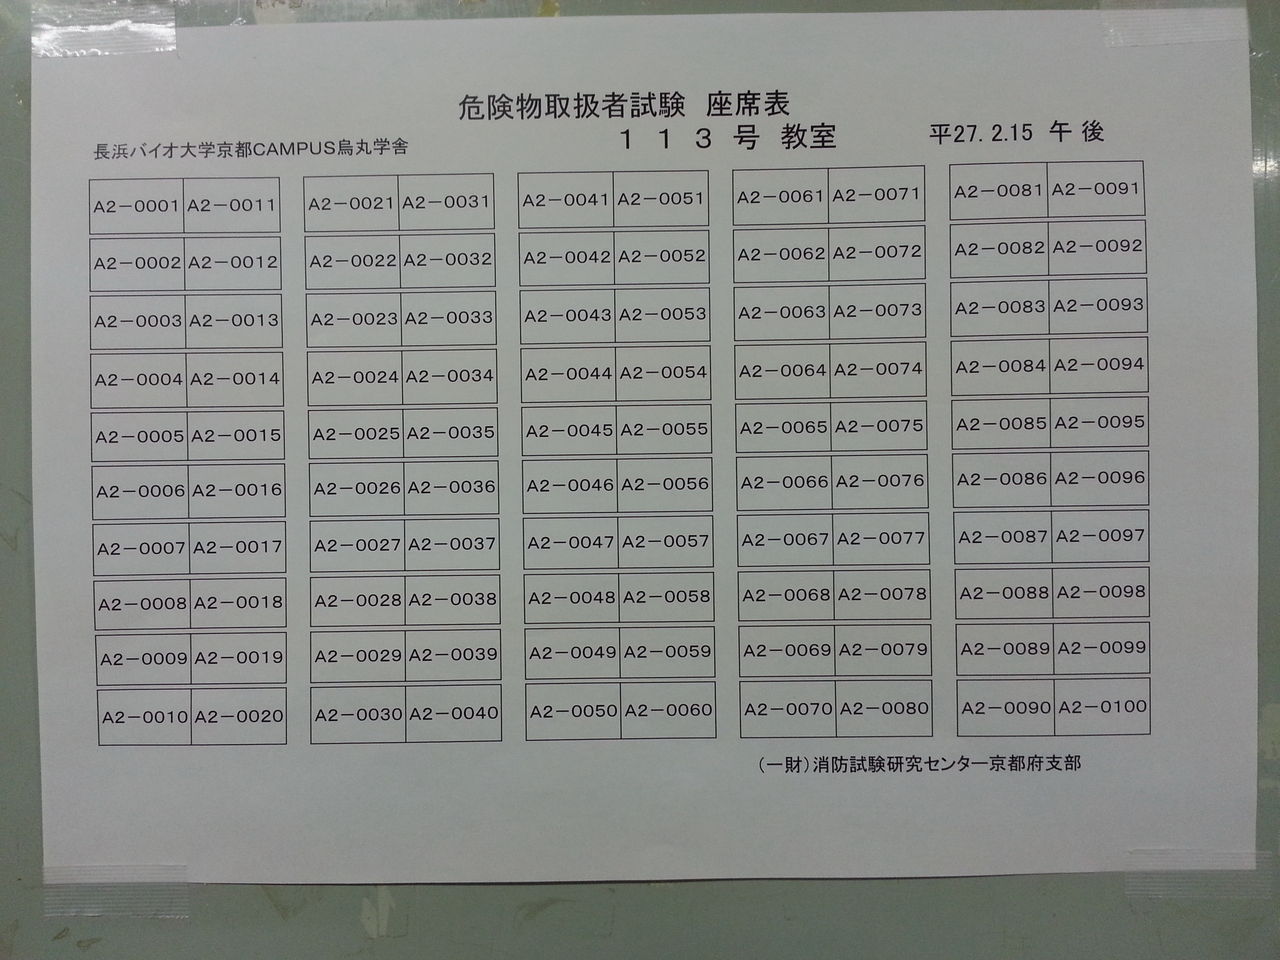 危険物取扱者試験 座席表
長浜バイオ大学京都CAMPUS烏丸学舎 １１３号 教室 平27.2.15 午後
A2－0001 A2－0011 A2－0021 A2－0031 A2－0041 A2－0051 A2－0061 A2－0071 A2－0081 A2－0091
A2－0002 A2－0012 A2－0022 A2－0032 A2－0042 A2－0052 A2－0062 A2－0072 A2－0082 A2－0092
A2－0003 A2－0013 A2－0023 A2－0033 A2－0043 A2－0053 A2－0063 A2－0073 A2－0083 A2－0093
A2－0004 A2－0014 A2－0024 A2－0034 A2－0044 A2－0054 A2－0064 A2－0074 A2－0084 A2－0094
A2－0005 A2－0015 A2－0025 A2－0035 A2－0045 A2－0055 A2－0065 A2－0075 A2－0085 A2－0095
A2－0006 A2－0016 A2－0026 A2－0036 A2－0046 A2－0056 A2－0066 A2－0076 A2－0086 A2－0096
A2－0007 A2－0017 A2－0027 A2－0037 A2－0047 A2－0057 A2－0067 A2－0077 A2－0087 A2－0097
A2－0008 A2－0018 A2－0028 A2－0038 A2－0048 A2－0058 A2－0068 A2－0078 A2－0088 A2－0098
A2－0009 A2－0019 A2－0029 A2－0039 A2－0049 A2－0059 A2－0069 A2－0079 A2－0089 A2－0099
A2－0010 A2－0020 A2－0030 A2－0040 A2－0050 A2－0060 A2－0070 A2－0080 A2－0090 A2－0100
（一財）消防試験研究センター京都府支部